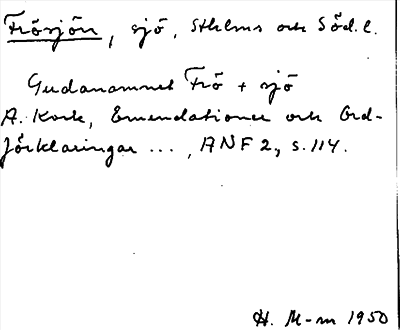 Frösjön, sjö, Sthlms och Söd. l.
Gudanamnet Frö + sjö
A. Kock, Emendationer och Ord-
förklaringar ..., ANF 2, s. 114.
H. M-m 1950